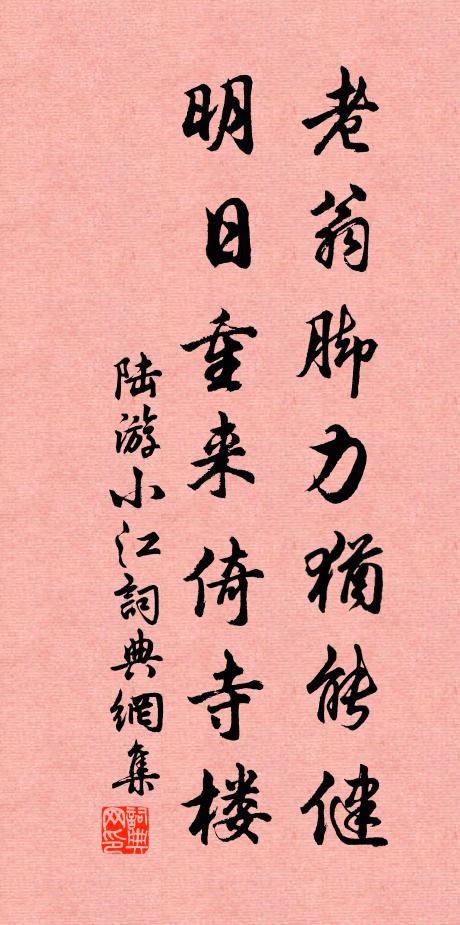 老翁脚力猶能健
明日重来倚寺楼
陆游小江詞典網集
詞典
网印